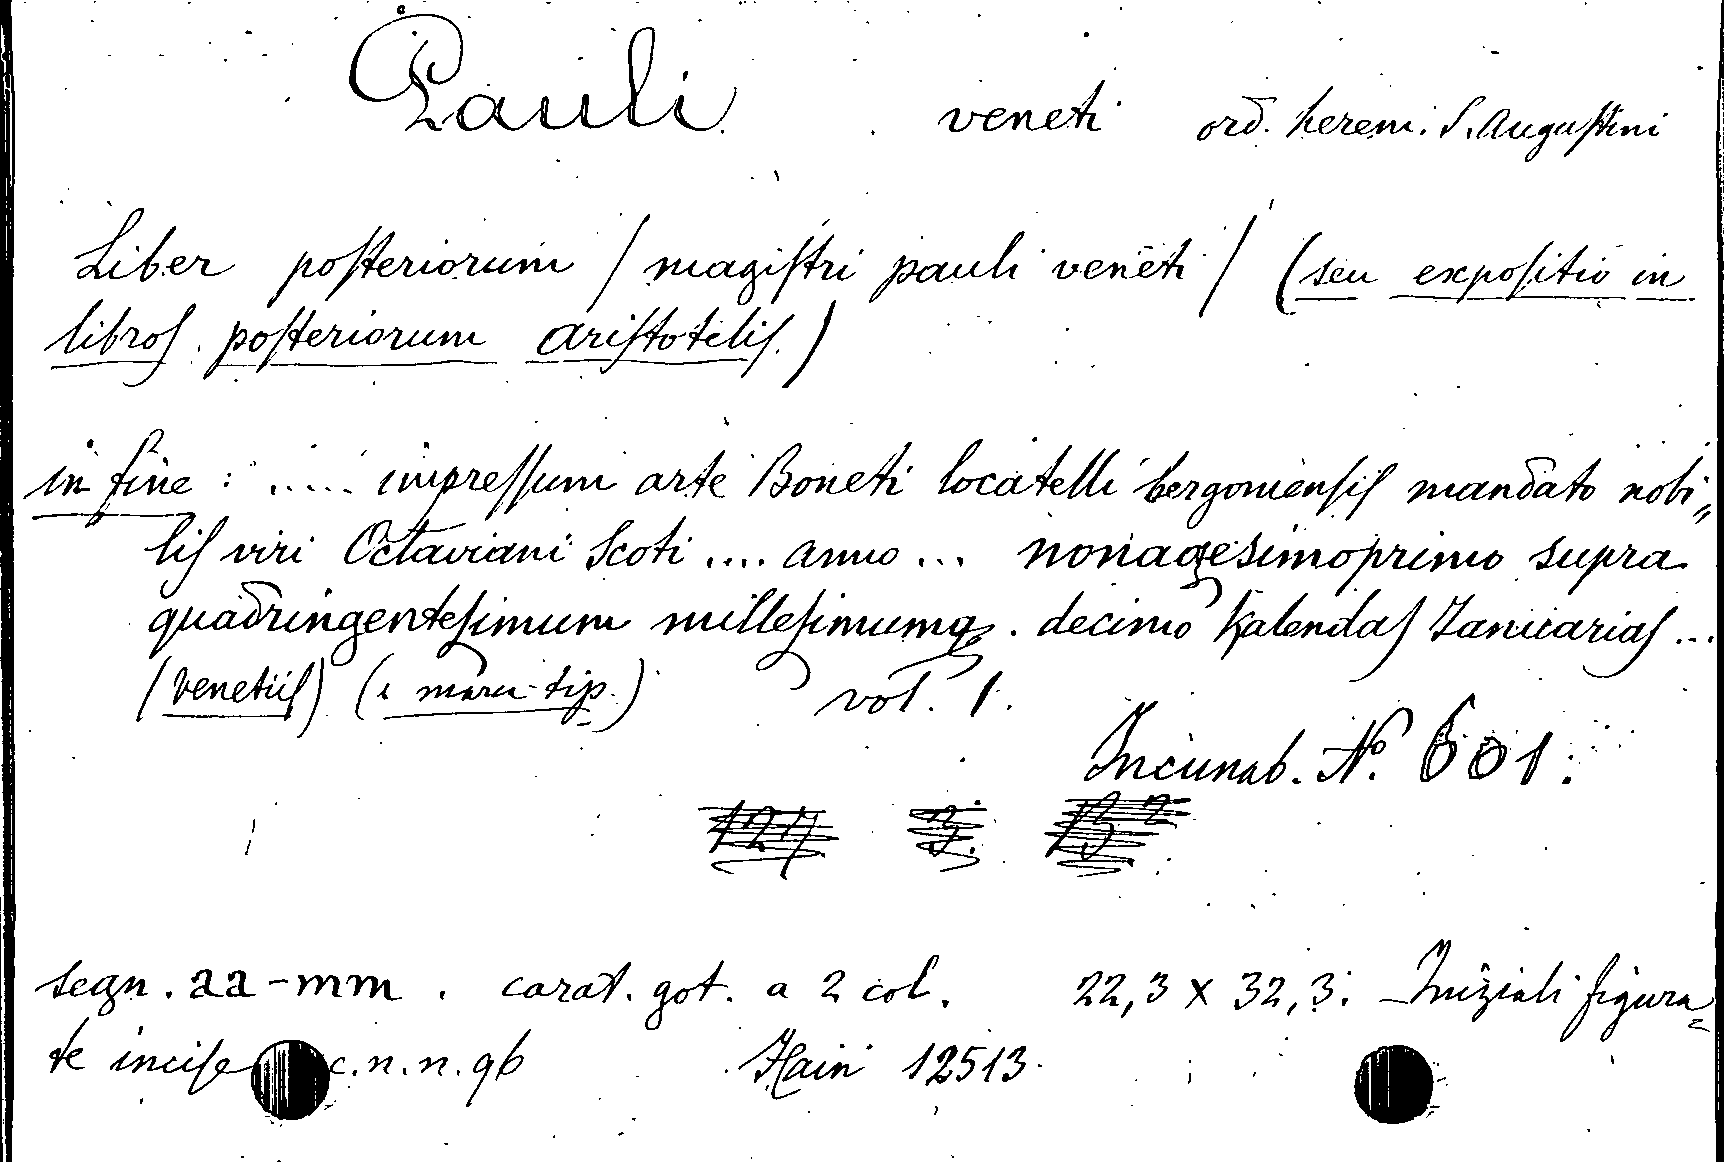 Pauli veneti ord. herem. S. Augustini
Liber posteriorum / magistri pauli veneti / (seu expositio in
libros posteriorum aristotelis.)
in fine : ..... impressum arte Boneti locatelli bergomensis mandato nobi=
lis viri Octaviani Scoti .... anno ... nonagesimoprimo supra
quadringentesimum millesimumq. decimo kalendas Januarias ...
(Venetiis) (i marca tip.) vol. 1.
Incunab. N.º 601.
127 3. 13 2
segn. aa-mm. carat. got. a 2 col. 22,3 x 32,3. Iniziali figura=
te incise c.n.n. 96 Hain 12513.